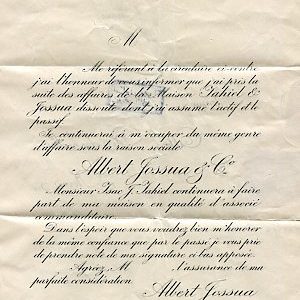 M
Me référant à la circulaire ci-contre
j'ai l'honneur de vous informer que j'ai pris la
suite des affaires de la Maison Fahiel &
Jossua dissoute dont j'ai assumé l'actif et le
passif.
Je continuerai à m'occuper du même genre
d'affaire sous la raison sociale
Albert Jossua & Cº
Monsieur Isac J. Fahiel continuera à faire
part de ma maison en qualité d'associé
commanditaire.
Dans l'espoir que vous voudrez bien m'honorer
de la même confiance que par le passé je vous prie
de prendre note de ma signature ci bas apposée.
Agréez M l'assurance de ma
parfaite considération
Albert Jossua